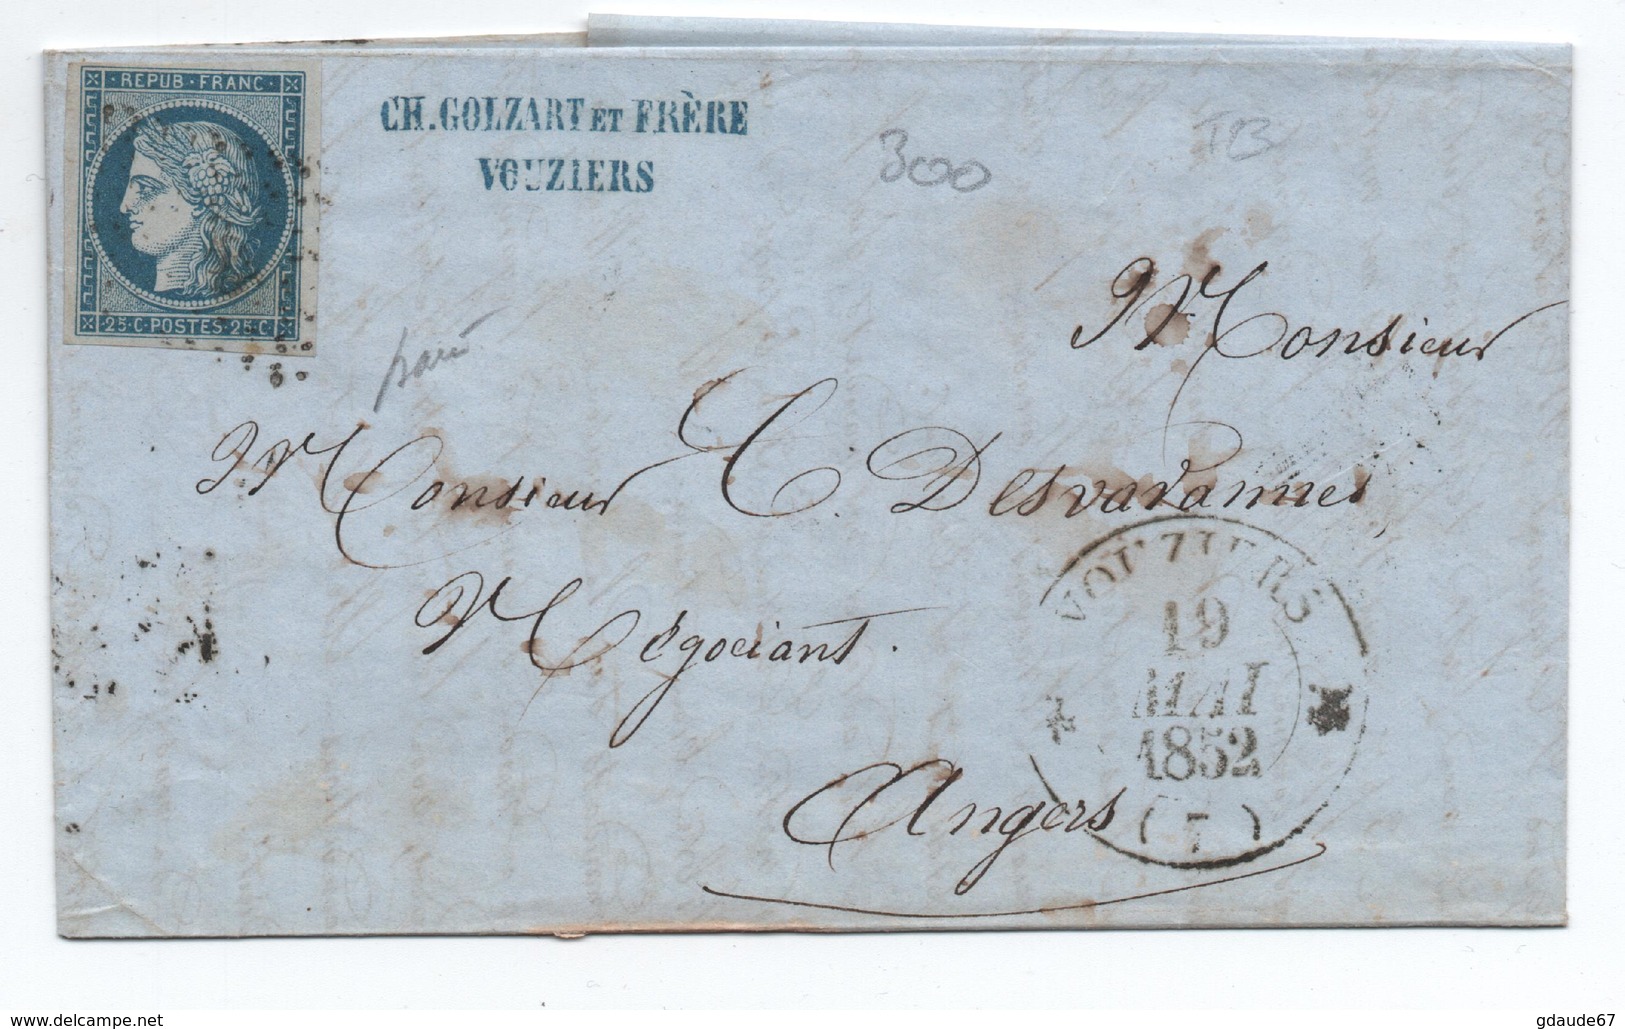 REPUB · FRANC ·
· 25 · C · POSTES · 25 · C ·
CH. GOLZART ET FRÈRE
VOUZIERS
300
TB
Monsieur
Monsieur C. Desvarannes
Négociant.
Angers
VOUZIERS
19
MAI
1852
( 7 )
www.delcampe.net
gdaude67